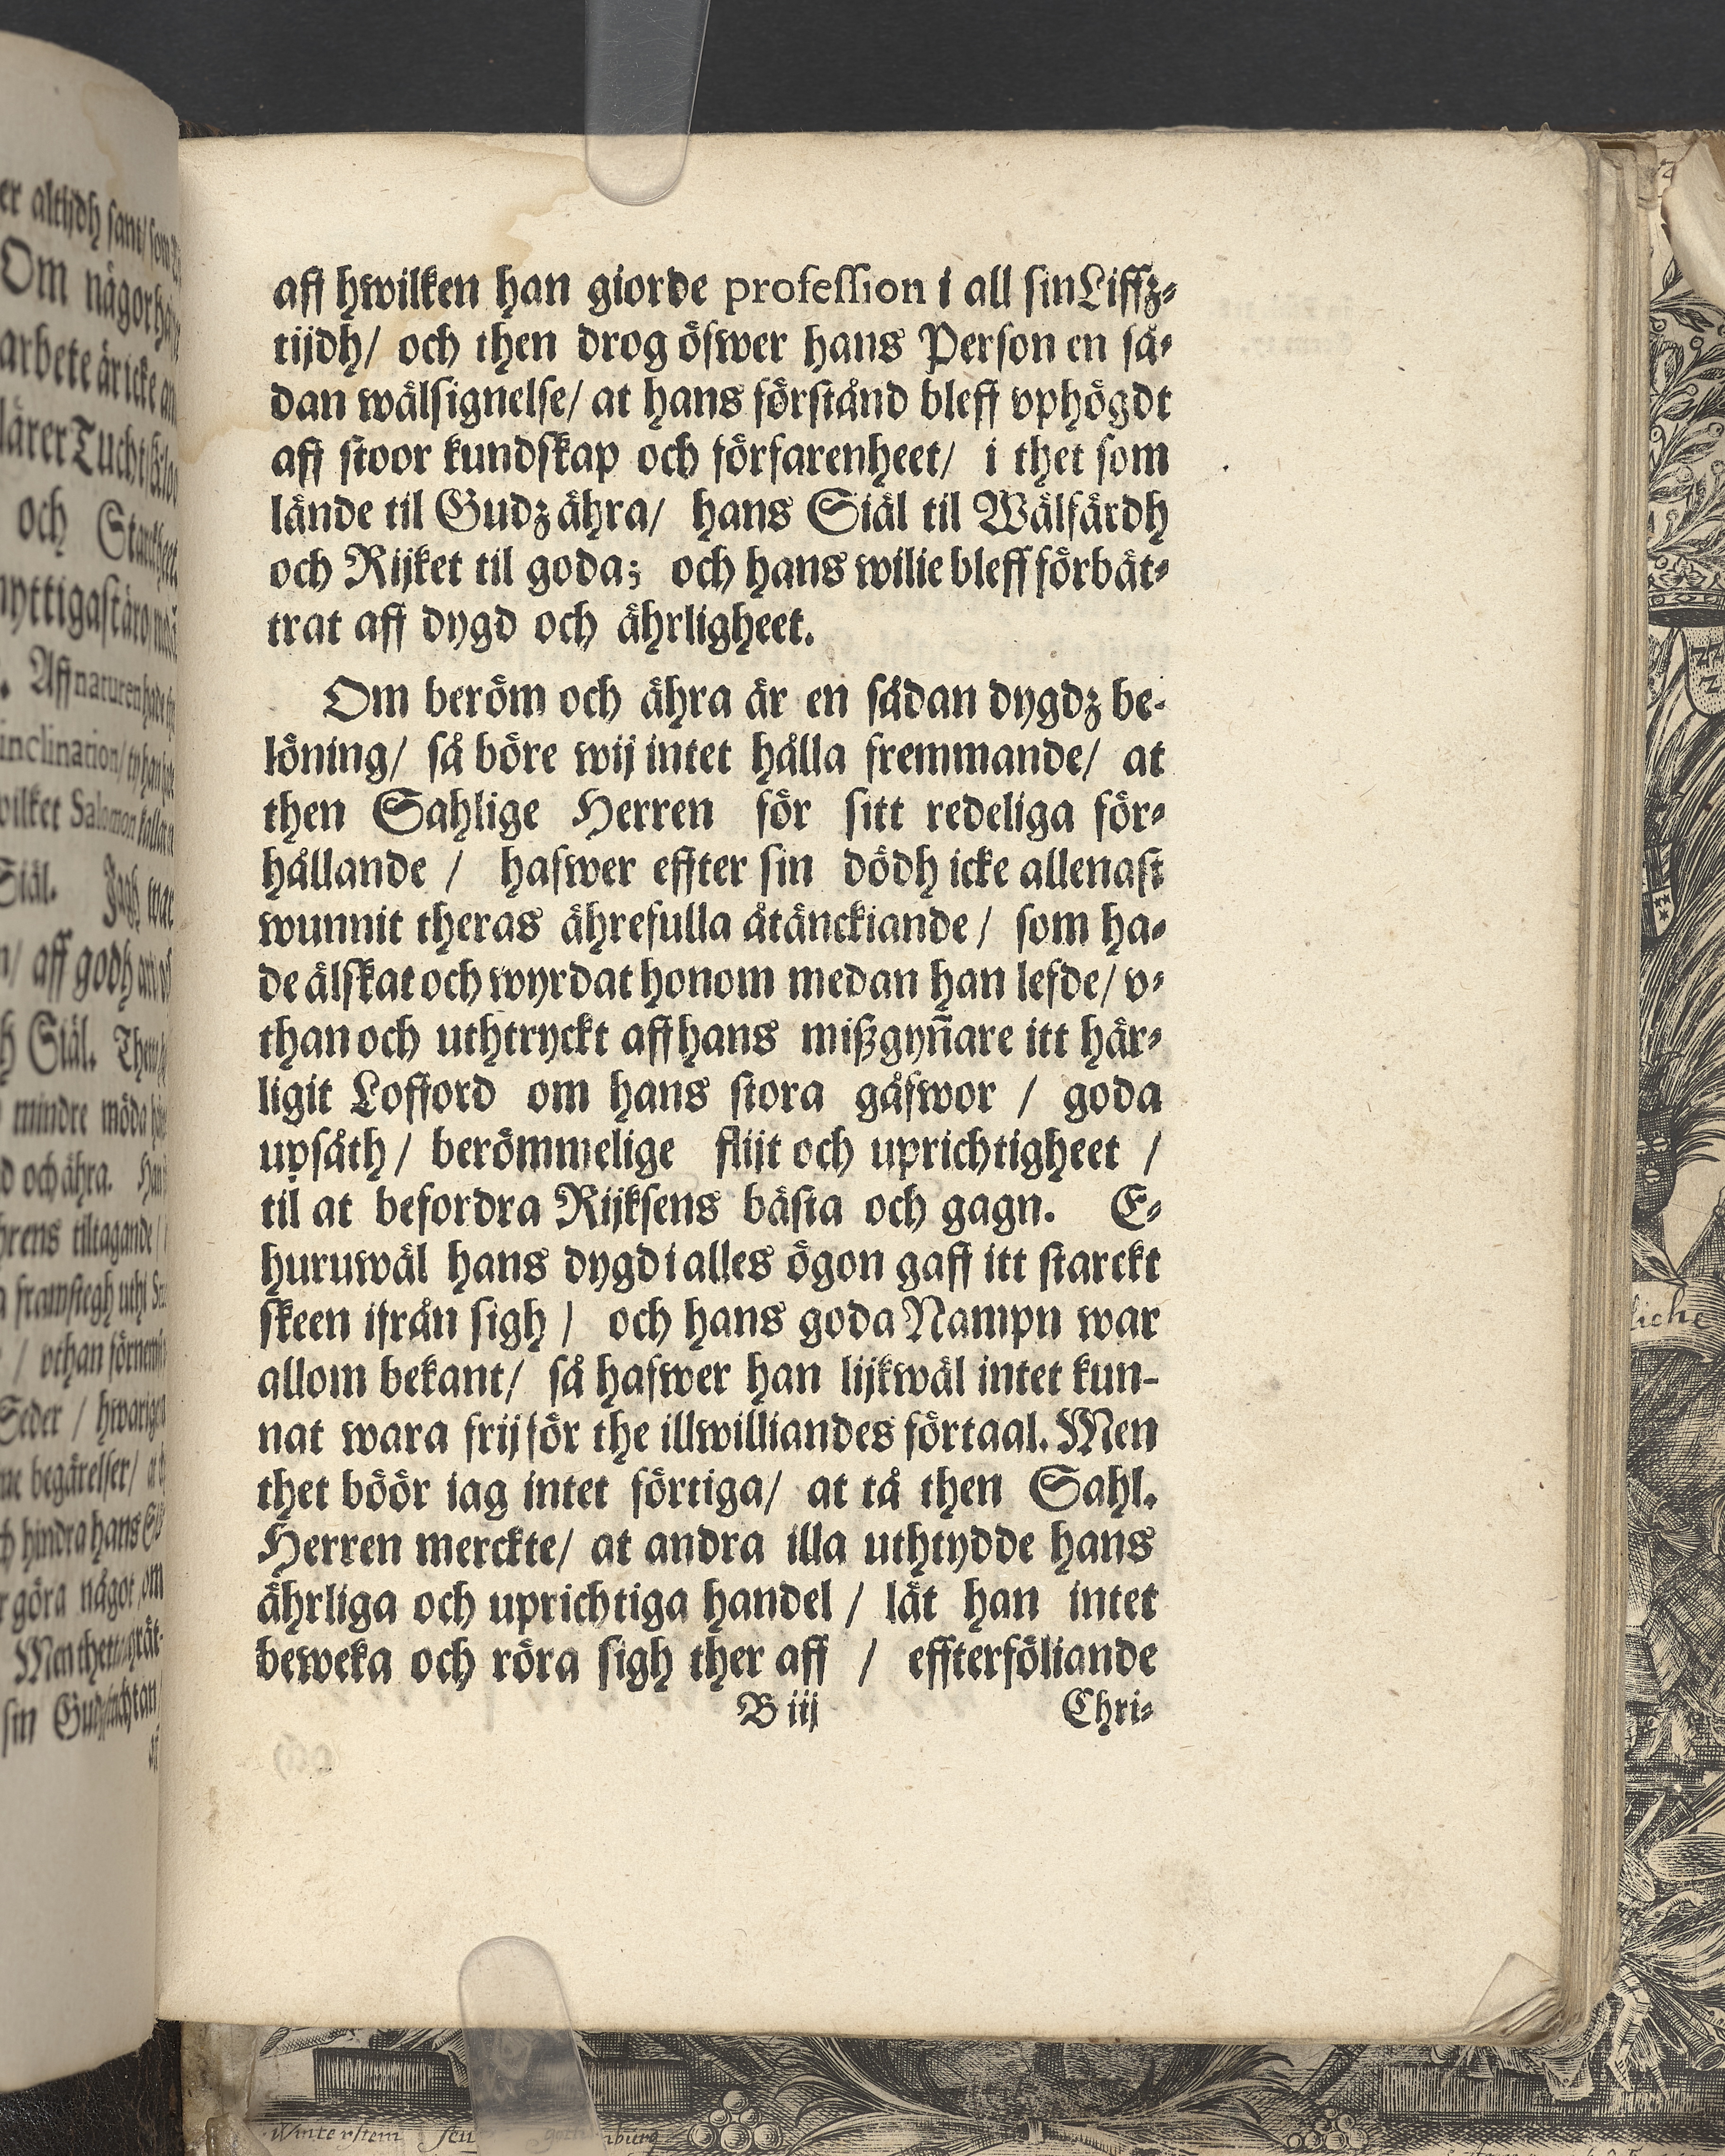 aff hwilken han giorde profession i all sin Liffz-
tijdh/ och then drog öfwer hans Person en så-
dan wälsignelse/ at hans förstånd bleff vphögdt
aff stoor kundskap och förfarenheet/ i thet som
lände til Gudz ähra/ hans Siäl til Wälfärdh
och Rijket til goda; och hans wilie bleff förbät-
trat aff dygd och ährligheet.
Om beröm och ähra är en sådan dygdz be-
löning/ så böre wij intet hålla fremmande/ at
then Sahlige Herren för sitt redeliga för-
hållande / hafwer effter sin dödh icke allenast
wunnit theras ährefulla åtänckiande / som ha-
de älskat och wyrdat honom medan han lefde/ v-
than och uthtryckt aff hans mißgyñare itt här-
ligit Lofford om hans stora gåfwor / goda
upsåth / berömmelige flijt och uprichtigheet /
til at befordra Rijksens bästa och gagn. E-
huruwäl hans dygd i alles ögon gaff itt starckt
skeen ifrån sigh / och hans goda Nampn war
allom bekant/ så hafwer han lijkwäl intet kun-
nat wara frij för the illwilliandes förtaal. Men
thet böör iag intet förtiga/ at tå then Sahl.
Herren merckte/ at andra illa uthtydde hans
ährliga och uprichtiga handel / lät han intet
beweka och röra sigh ther aff / effterföliande
B iij Chri-